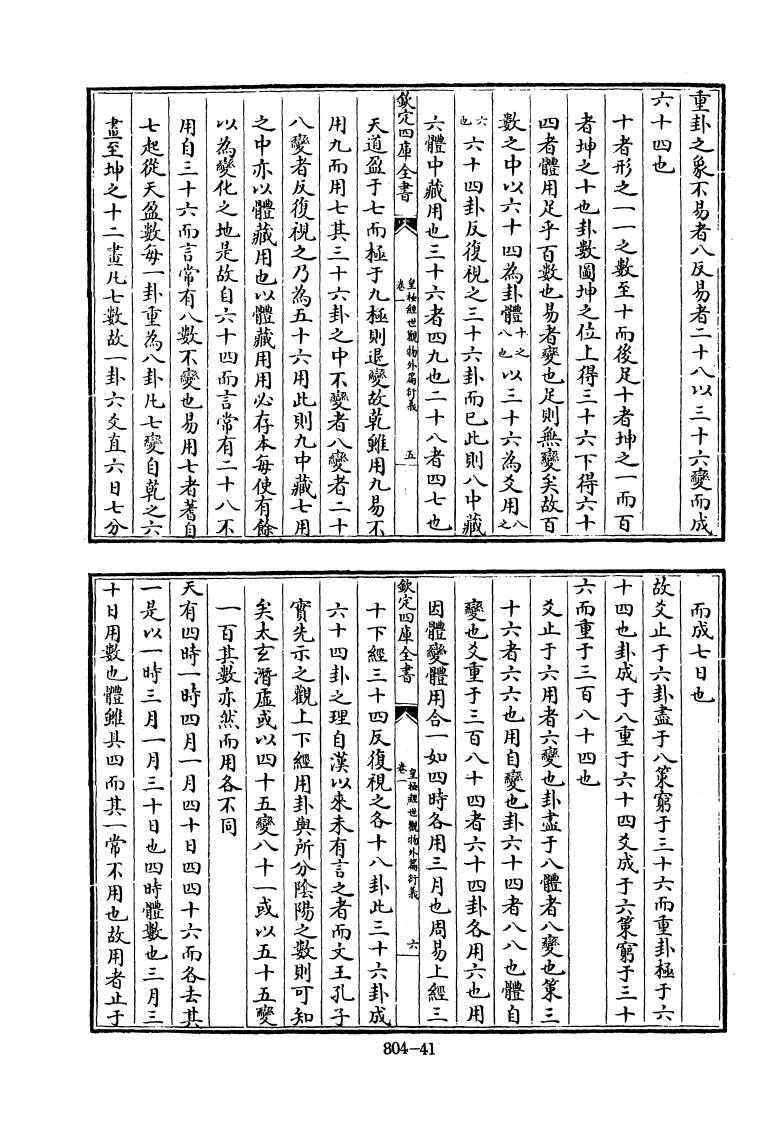 重卦之象不易者八反易者二十八以三十六變而成
六十四也
十者形之一一之數至十而後足十者坤之一而百
者坤之十也卦數圖坤之位上得三十六下得六十
四者體用足乎百數也易者變也足則無變矣故百
數之中以六十四為卦體十之八也以三十六為爻用八之
六也六十四卦反復視之三十六卦而已此則八中藏
六體中藏用也三十六者四九也二十八者四七也
欽定四庫全書
皇極經世觀物外篇衍義
卷一
五
天道盈于七而極于九極則退變故乾雖用九易不
用九而用七其三十六卦之中不變者八變者二十
八變者反復視之乃為五十六用此則九中藏七用
之中亦以體藏用也以體藏用用必存本每使有餘
以為變化之地是故自六十四而言常有二十八不
用自三十六而言常有八數不變也易用七者蓍自
七起從天盈數每一卦重為八卦凡七變自乾之六
畫至坤之十二畫凡七數故一卦六爻直六日七分
而成七日也
故爻止于六卦盡于八策窮于三十六而重卦極于六
十四也卦成于八重于六十四爻成于六策窮于三十
六而重于三百八十四也
爻止于六用者六變也卦盡于八體者八變也策三
十六者六六也用自變也卦六十四者八八也體自
變也爻重于三百八十四者六十四卦各用六也用
因體變體用合一如四時各用三月也周易上經三
欽定四庫全書
皇極經世觀物外篇衍義
卷一
六
十下經三十四反復視之各十八卦此三十六卦成
六十四卦之理自漢以來未有言之者而文王孔子
實先示之觀上下經用卦與所分陰陽之數則可知
矣太玄潛虛或以四十五變八十一或以五十五變
一百其數亦然而用各不同
天有四時一時四月一月四十日四四十六而各去其
一是以一時三月一月三十日也四時體數也三月三
十日用數也體雖具四而其一常不用也故用者止于
804-41